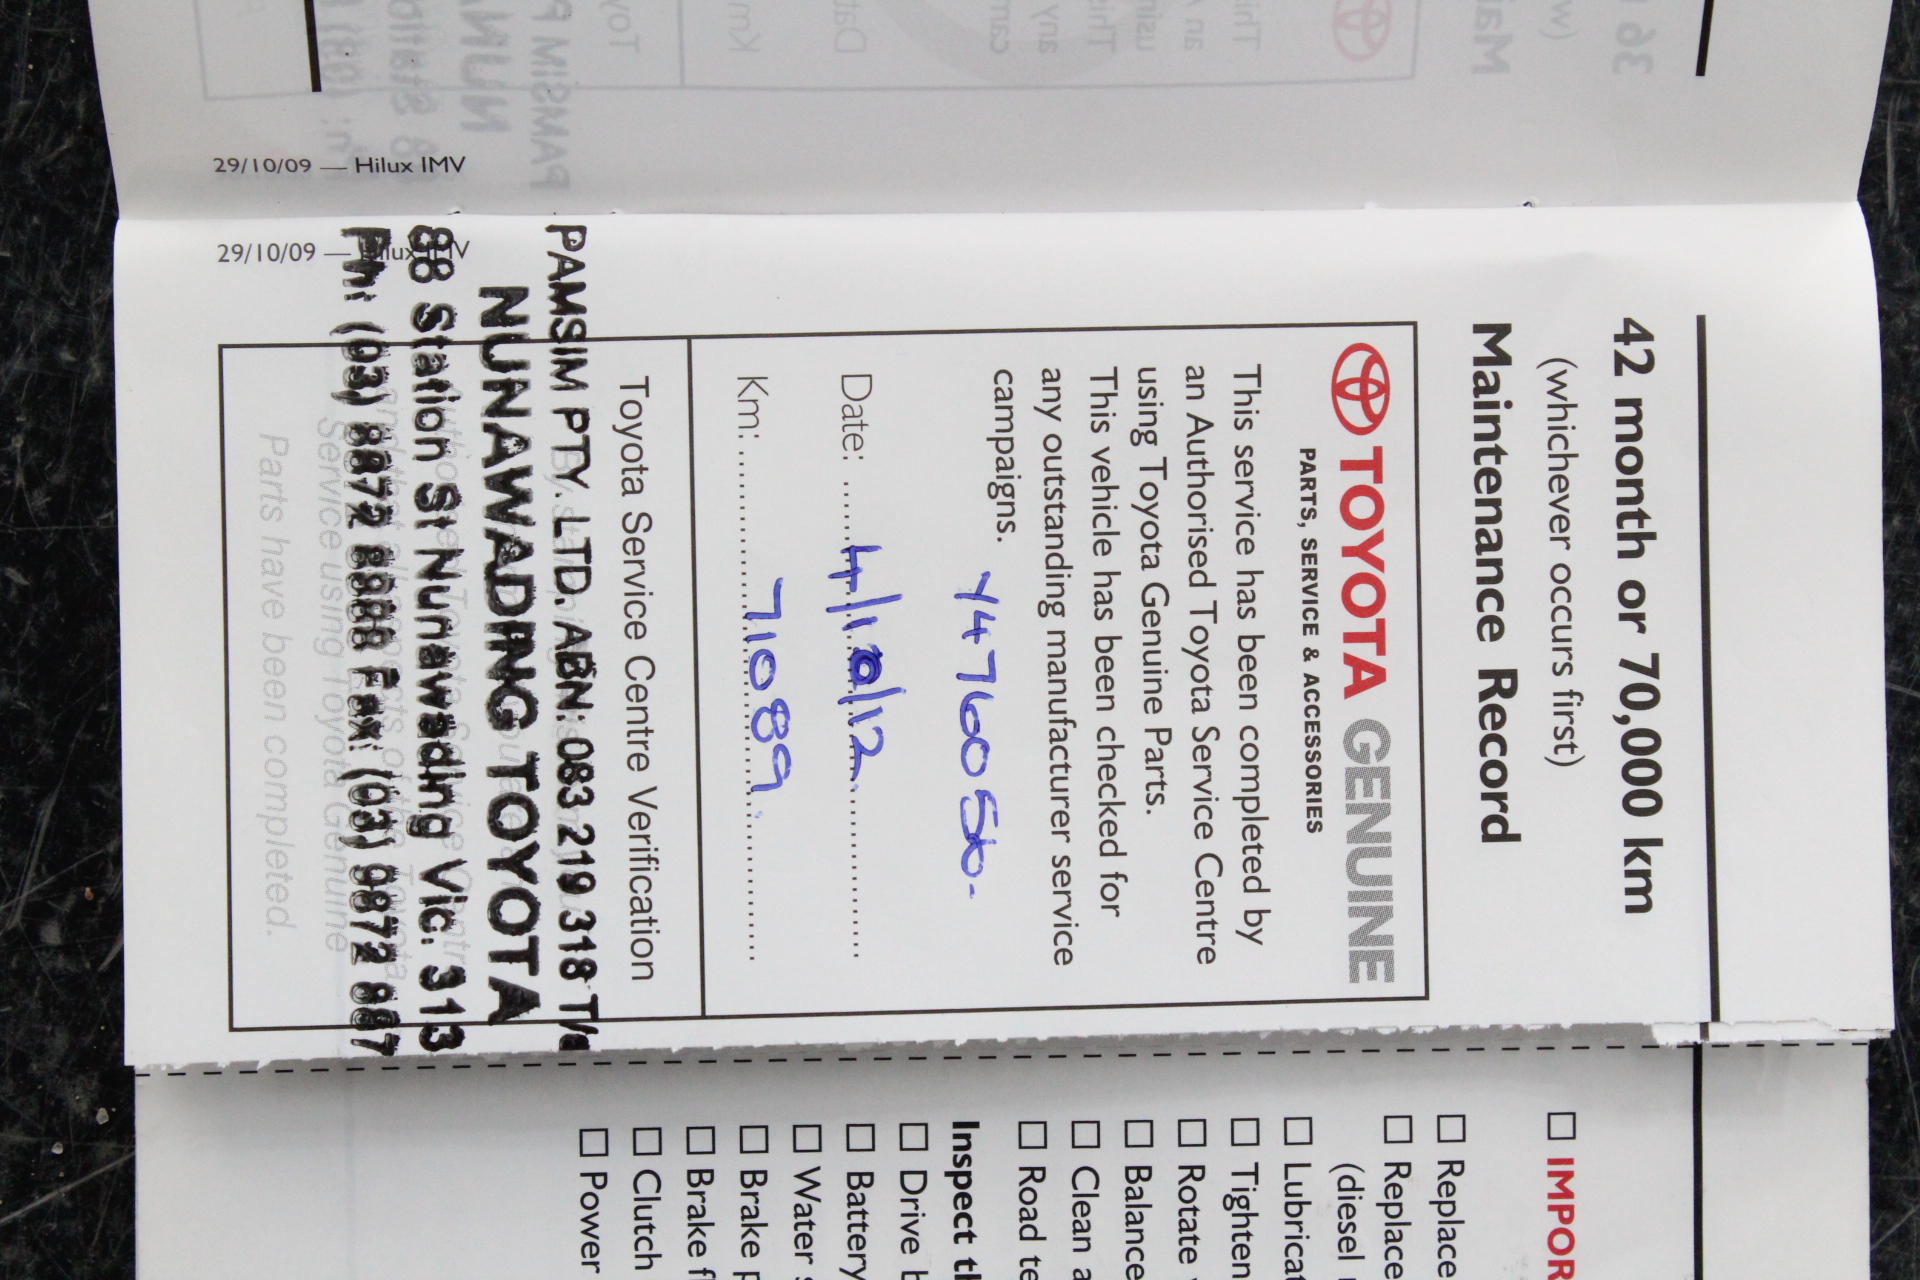 42 month or 70,000 km
(whichever occurs first)
Maintenance Record
TOYOTA GENUINE
PARTS, SERVICE & ACCESSORIES
This service has been completed by
an Authorised Toyota Service Centre
using Toyota Genuine Parts.
This vehicle has been checked for
any outstanding manufacturer service
campaigns.
Y476005
Date: 4/10/12
Km: 71089
Toyota Service Centre Verification
PAMSIM PTY. LTD. ABN: 083 219 318 T/a
NUNAWADING TOYOTA
88 Station St Nunawading Vic. 313
Ph: (03) 8872 8888 Fax: (03) 9872 887
Service using Toyota Genuine
Parts have been completed.
29/10/09 — Hilux IMV
29/10/09 — Hilux IMV
IMPOR
Replace
Replace
(diesel
Lubricat
Tighten
Rotate
Balance
Clean a
Road te
Inspect th
Drive b
Battery
Water
Brake p
Brake f
Clutch
Power